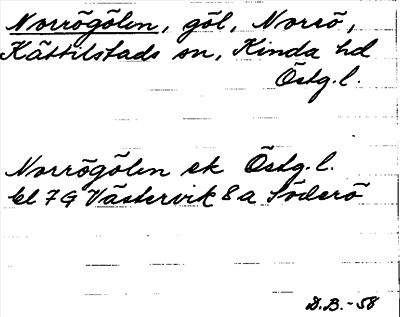 Norrögölen, göl, Norrö,
Kättilstads sn, Kinda hd
Östg.l.
Norrögölen ek Östg.l.
bl 7G Västervik 8a Söderö
D.B.-58